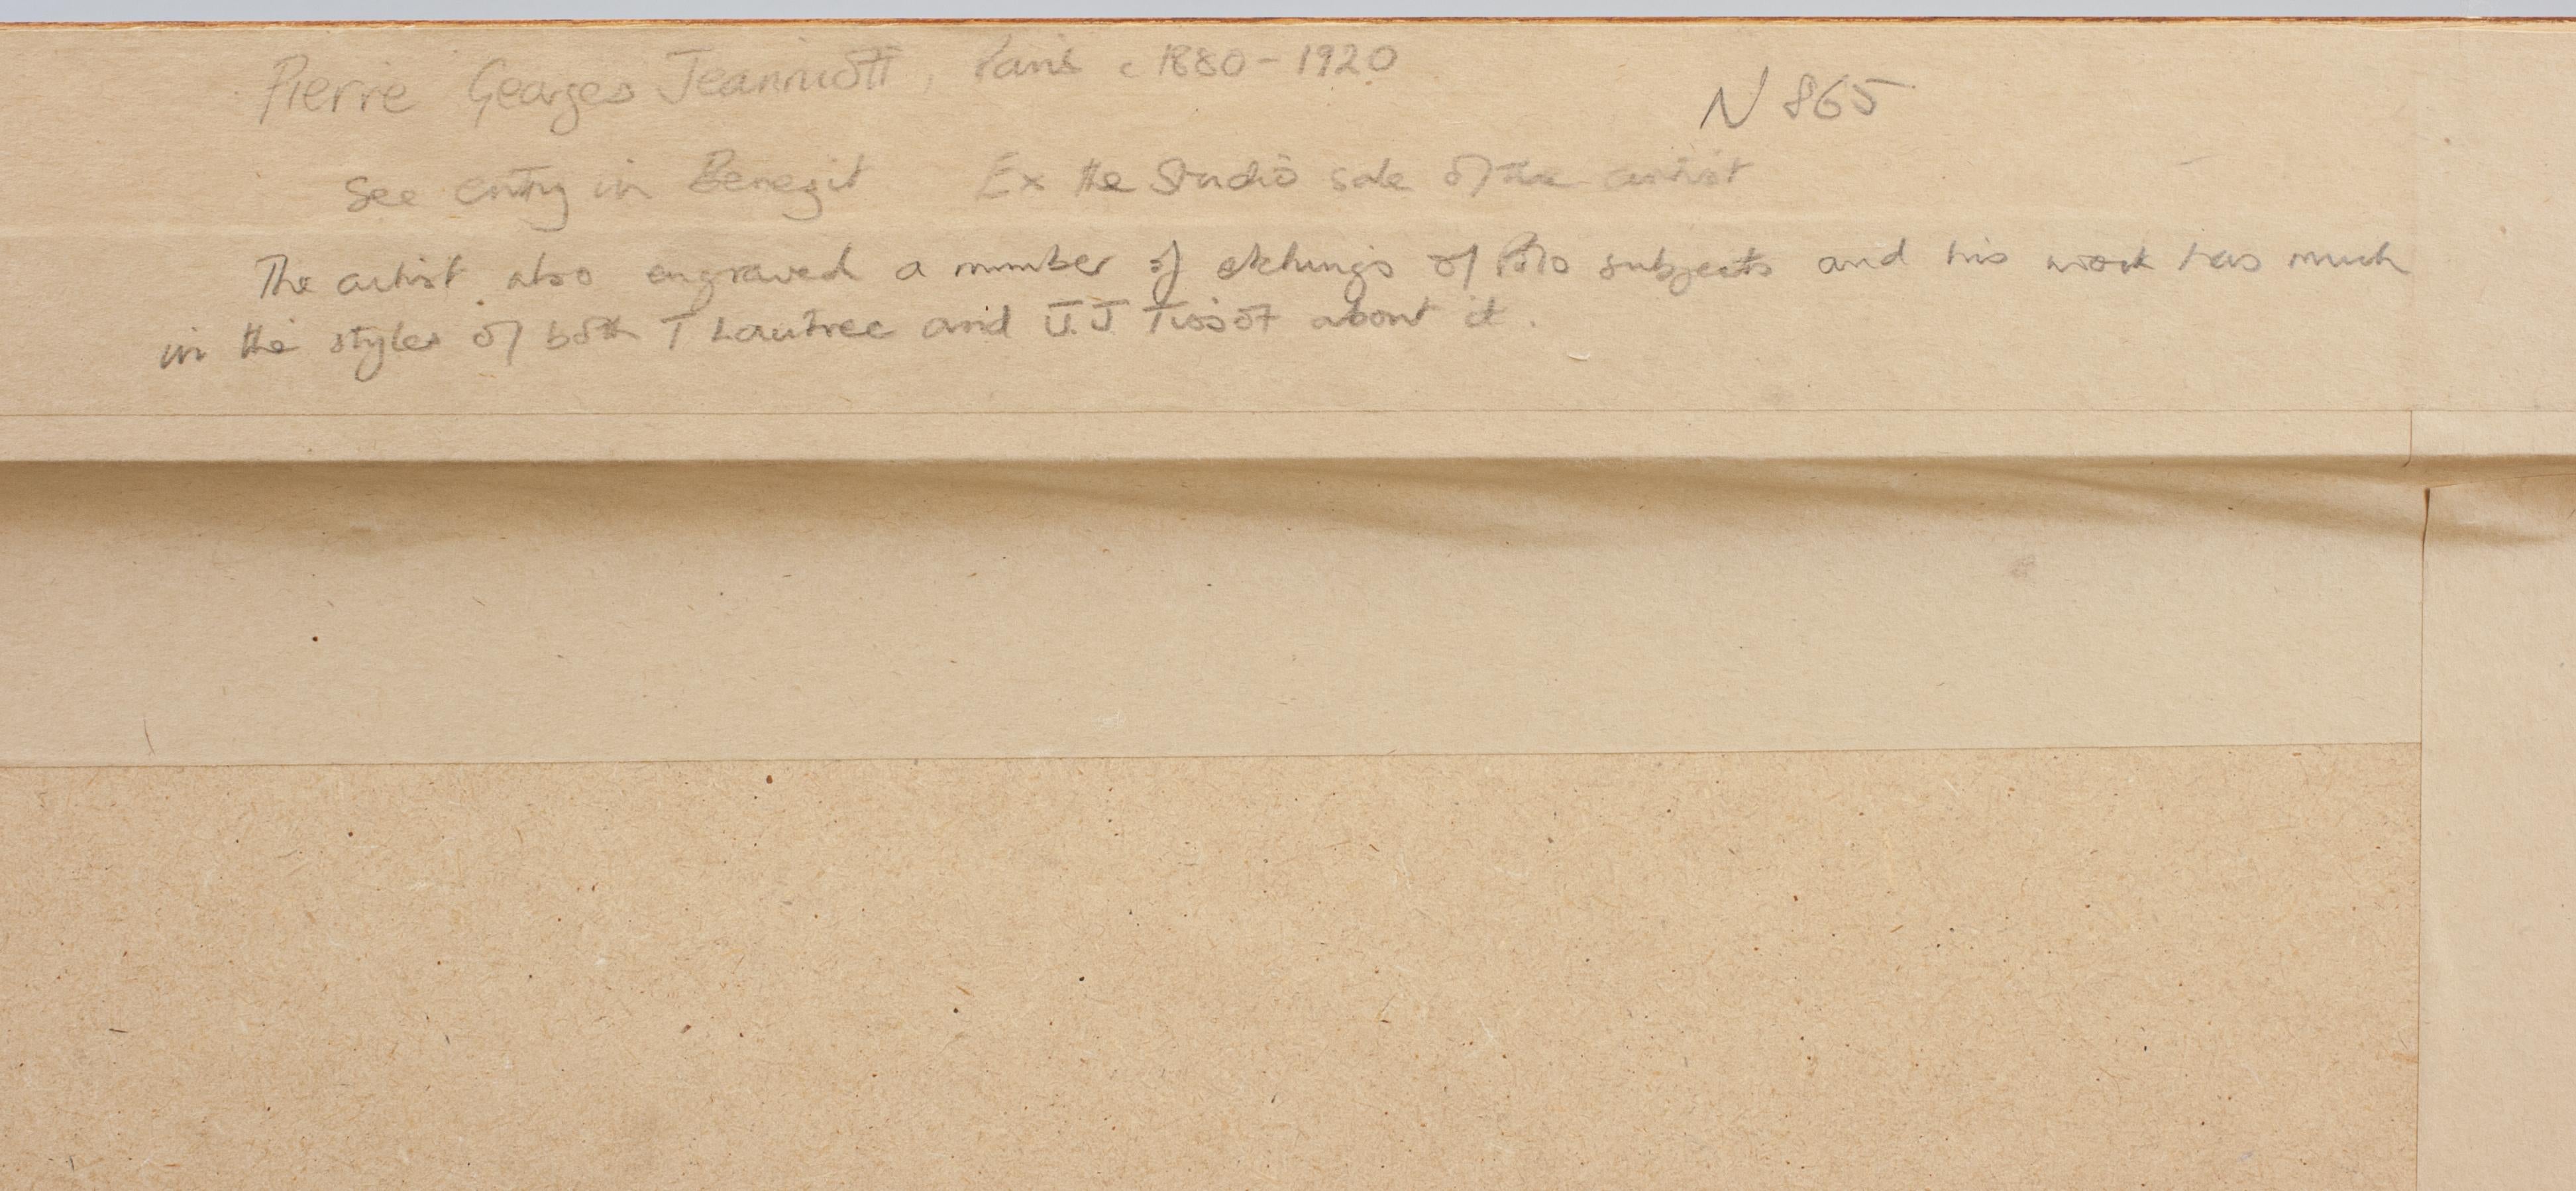 Pierre Georges Jeanniott, Paris c 1880-1920
N 865
See entry in Benezit Ex the Studio sale of the artist
The artist also engraved a number of etchings of Polo subjects and his work has much
in the styles of both T Lautrec and J.J Tissot about it.